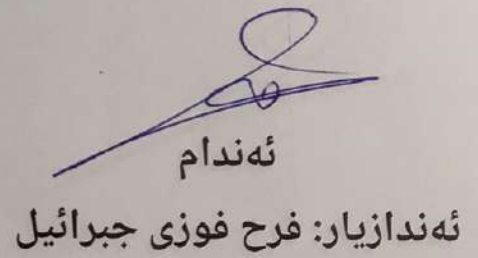 ئەندام
ئەندازیار: فرح فوزي جبرائیل